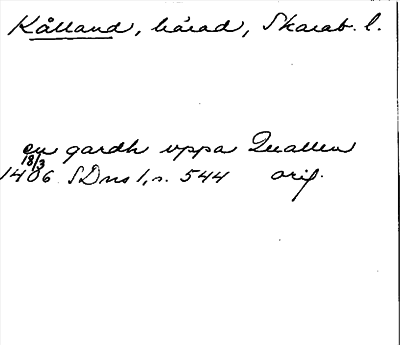 Kålland, härad, Skarab. l.
en gardh uppa Quallen
18/3
1406 SDns 1, s. 544 orig.